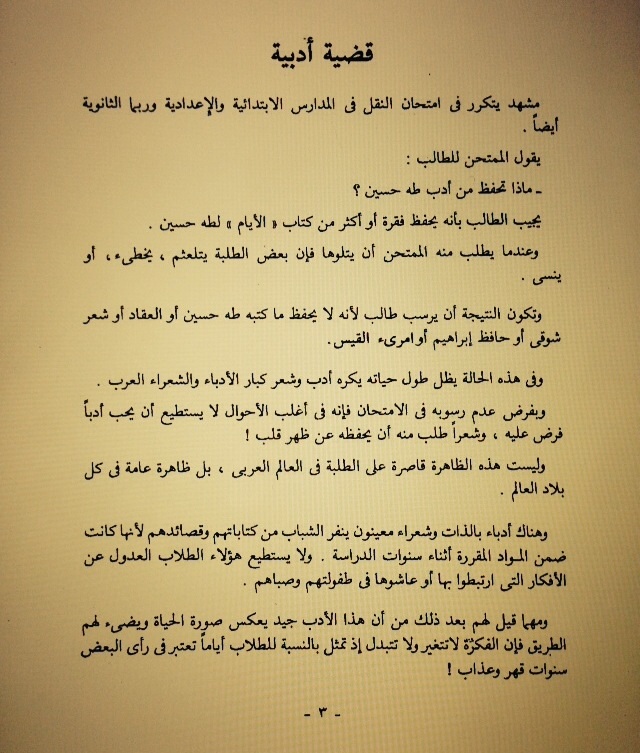 قضية أدبية
مشهد يتكرر فى امتحان النقل فى المدارس الابتدائية والإعدادية وربما الثانوية
أيضاً .
يقول الممتحن للطالب :
ـ ماذا تحفظ من أدب طه حسين ؟
يجيب الطالب بأنه يحفظ فقرة أو أكثر من كتاب « الأيام » لطه حسين .
وعندما يطلب منه الممتحن أن يتلوها فإن بعض الطلبة يتلعثم ، يخطىء ، أو
ينسى .
وتكون النتيجة أن يرسب طالب لأنه لا يحفظ ما كتبه طه حسين أو العقاد أو شعر
شوقى أو حافظ إبراهيم أو امرىء القيس.
وفى هذه الحالة يظل طول حياته يكره أدب وشعر كبار الأدباء والشعراء العرب .
وبفرض عدم رسوبه فى الامتحان فإنه فى أغلب الأحوال لا يستطيع أن يحب أدباً
فرض عليه ، وشعراً طلب منه أن يحفظه عن ظهر قلب !
وليست هذه الظاهرة قاصرة على الطلبة فى العالم العربى ، بل ظاهرة عامة فى كل
بلاد العالم .
وهناك أدباء بالذات وشعراء معينون ينفر الشباب من كتاباتهم وقصائدهم لأنها كانت
ضمن المواد المقررة أثناء سنوات الدراسة . ولا يستطيع هؤلاء الطلاب العدول عن
الأفكار التى ارتبطوا بها أو عاشوها فى طفولتهم وصباهم .
ومهما قيل لهم بعد ذلك من أن هذا الأدب جيد يعكس صورة الحياة ويضىء لهم
الطريق فإن الفكرة لاتتغير ولا تتبدل إذ تمثل بالنسبة للطلاب أياماً تعتبر فى رأى البعض
سنوات قهر وعذاب !
- ٣ -